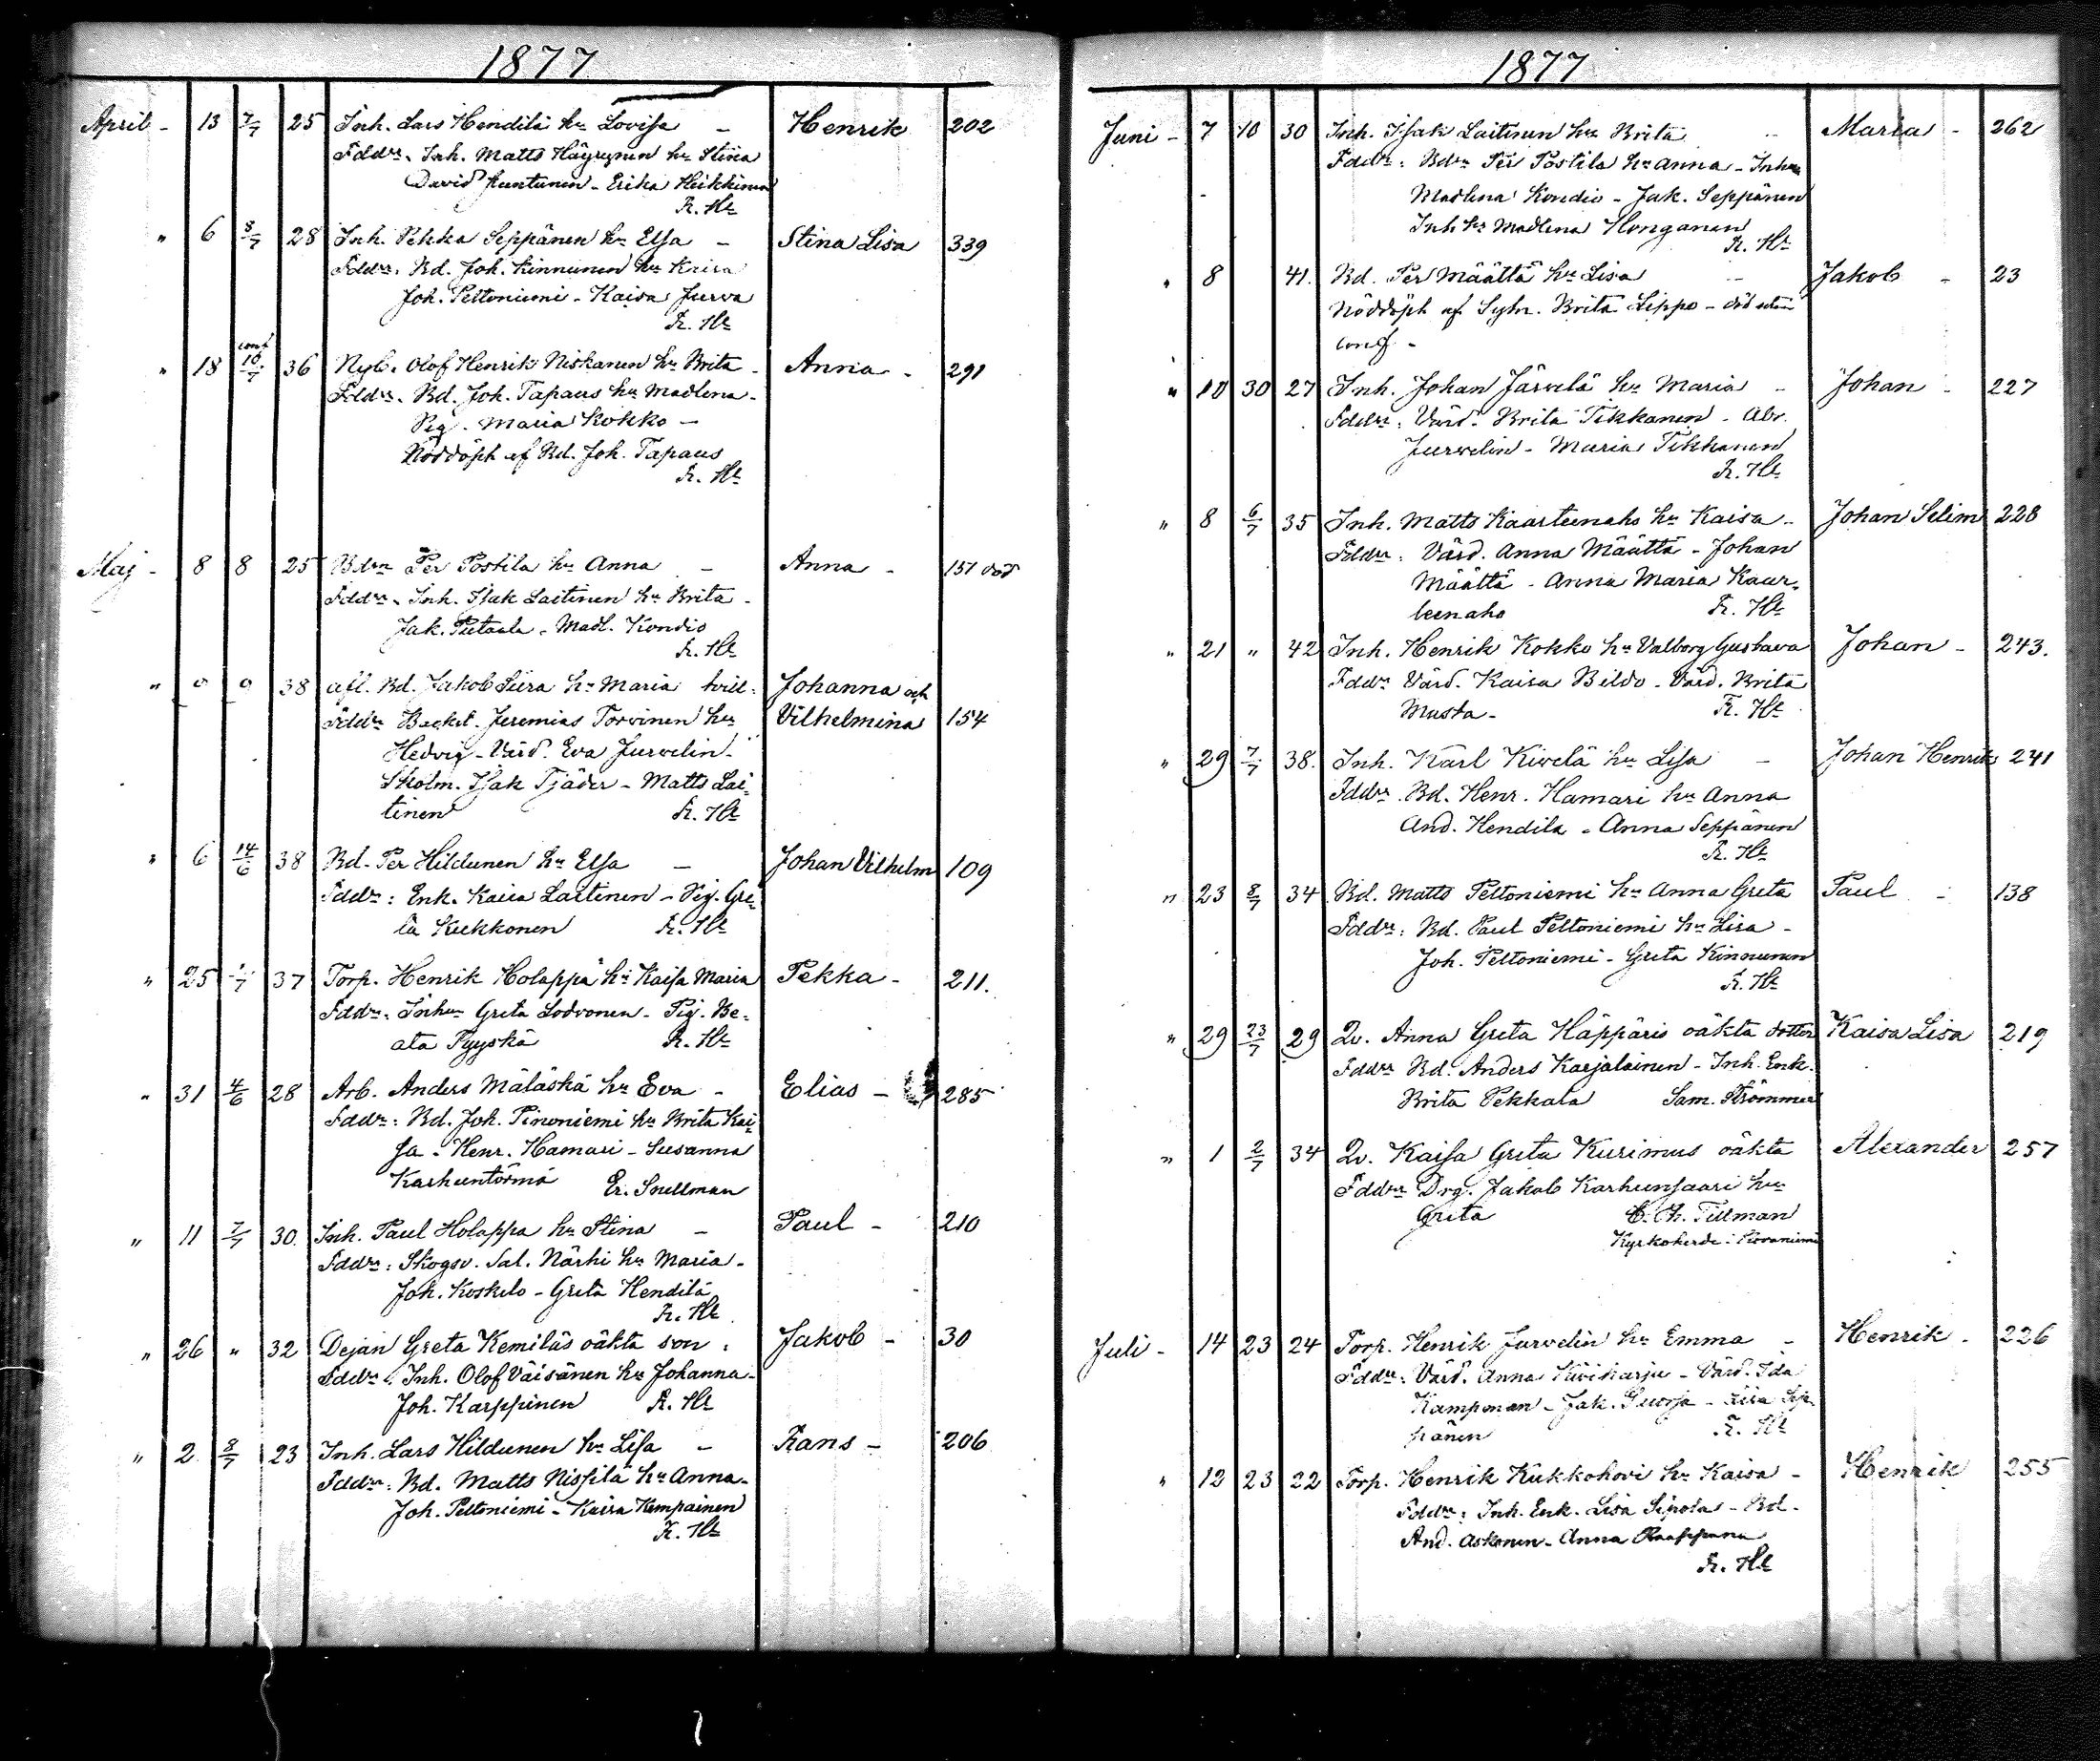 1877
April - 13 7/7 25 Inh. Lars Hendilä hu Lovisa - Henrik 202
Fddr. Inh. Matts Häyrynen hu Stina
David Kuntunen - Erika Heikkinen
R. Hk
" 6 8/7 28 Inh. Pekka Seppänen hu Elsa - Stina Lisa 339
Fddr. Bd. Joh. Kinnunen hu Kaisa
Joh. Peltoniemi - Kaisa Jurva
R. Hk
" 18 conf 16/7 36 Nyb. Olof Henrik Niskanen hu Brita - Anna - 291
Fddr. Bd. Joh. Tapaus hu Madlena -
Pig. Maria Kokko -
Nöddöpt af Bd. Joh. Tapaus
R. Hk
Maj - 8 8 25 Bdsn Per Postila hu Anna - Anna - 151 död
Fddr. Inh. Isak Laitinen hu Brita -
Jak. Pietaala - Madl. Kondio
R. Hk
" 9 9 38 afl. Bd. Jakob Piera hu Maria tvill: Johanna och
Fddr Torvinen hu Vilhelmina 154
Hedvig - Värd. Eva Jurvelin -
Skolm. Isak Tjäder - Matts Lai-
tinen R. Hk
" 6 14/6 38 Bd. Per Hildunen hu Elsa - Johan Vilhelm 109
Fddr: Enk. Kaisa Laitinen - Pig. Gre-
ta Kukkonen R. Hk
" 25 /7 37 Torp. Henrik Holappa hu Kaisa Maria Pekka - 211.
Fddr. Inhu Greta Lodvonen - Pig. Be-
ata Pyyskä R. Hk
" 31 4/6 28 Arb. Anders Mäläskä hu Eva - Elias - 285
Fddr: Bd. Joh. Pinoniemi hu Brita Kai-
sa - Henr. Hamari - Susanna
Karhuntörmä Er. Snellman
" 11 7/7 30. Inh. Paul Holappa hu Stina - Paul - 210
Fddr: Skogsv. Sal. Närhi hu Maria -
Joh. Koskelo - Greta Hendilä
R. Hk
" 26 " 32 Dejan Greta Kemiläs oäkta son: Jakob - 30
Fddr. Inh. Olof Väisänen hu Johanna -
Joh. Karppinen R. Hk
" 2 8/7 23 Inh. Lars Hildunen hu Lisa - Frans - 206
Fddr: Bd. Matts Nissilä hu Anna -
Joh. Peltoniemi - Kaisa Kempainen
R. Hk
1877
Juni - 7 10 30 Inh. Isak Laitinen hu Brita - Maria - 262
Fddr: Bdsn Per Postila hu Anna - Inh
Madlena Kondio - Jak. Seppänen
Inh hu Madlena Honganen
R. Hk
" 8 41. Bd. Per Määttä hu Lisa - Jakob - 23
Nöddöpt af Sytn. Brita Lippo - död utan
conf -
" 10 30 27 Inh. Johan Järvelä hu Maria - Johan - 227
Fddr: Värd. Brita Tikkanen - Abr.
Jurvelin - Maria Tikkanen
R. Hk
" 8 6/7 35 Inh. Matts Kaarteenaho hu Kaisa - Johan Selim 228
Fddr: Värd. Anna Määttä - Johan
Määttä - Anna Maria Kaar-
teenaho R. Hk
" 21 " 42 Inh. Henrik Kokko hu Valborg Gustava Johan - 243.
Fddr Värd. Kaisa Bildo - Värd. Brita
Musta - R. Hk
" 29 7/7 38. Inh. Karl Kivelä hu Lisa - Johan Henrik 241
Fddr. Bd. Henr. Hamari hu Anna
And. Hendilä - Anna Seppänen
R. Hk
" 23 8/7 34 Bd. Matts Peltoniemi hu Anna Greta Paul - 138
Fddr: Bd. Paul Peltoniemi hu Lisa -
Joh. Peltoniemi - Greta Kinnunen
R. Hk
" 29 23/7 29 Qv. Anna Greta Häppäris oäkta dotter Kaisa Lisa 219
Fddr Bd. Anders Karjalainen - Inh. Enk.
Brita Pekkala Sam. Strömmer
" 1 2/7 34 Qv. Kaisa Greta Kurimus oäkta Alexander 257
Fddr Drg. Jakob Karhunsaari hu
Greta C. Ch. Tillman
Kyrkoherde i Rovaniemi
Juli - 14 23 24 Torp. Henrik Jurvelin hu Emma - Henrik - 226
Fddr: Värd. Anna Kiviharju - Värd. Ida
Kampman - Jak. - Lisa Sep-
pänen R. Hk
" 12 23 22 Torp. Henrik Kukkohovi hu Kaisa - Henrik 255
Fddr: Inh. Enk. Lisa Sipola - Bd.
And. Askonen - Anna Raappana
R. Hk